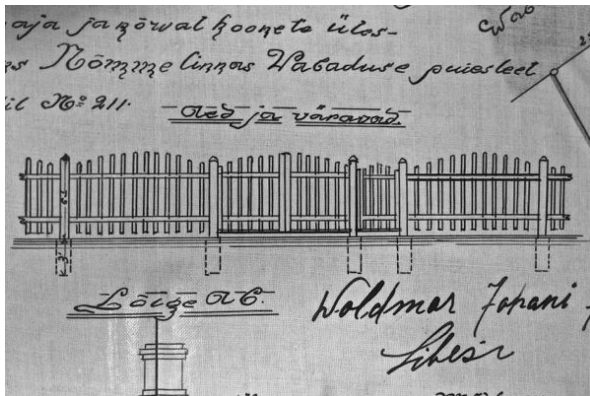 aja ja kõrval hoonete üles-
as Nõmme linnas Vabaduse puiesteel
il No 211.
Aed ja väravad.
Lõige AC.
Voldmar Johani